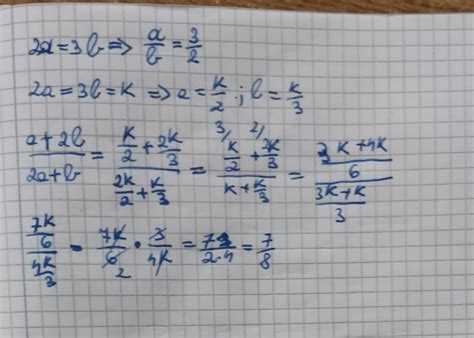 2a=3b=> a/b = 3/2
2a=3b=K => a= K/2 ; b= K/3
(a+2b)/(2a+b) = (K/2 + 2K/3)/(2K/2 + K/3) = (3, K/2 + 2, 2K/3)/(K + K/3) = ((3K+4K)/6)/((3K+K)/3)
(7K/6)/(4K/3) = 7K/6 2 · 3/4K = 7/(2·4) = 7/8